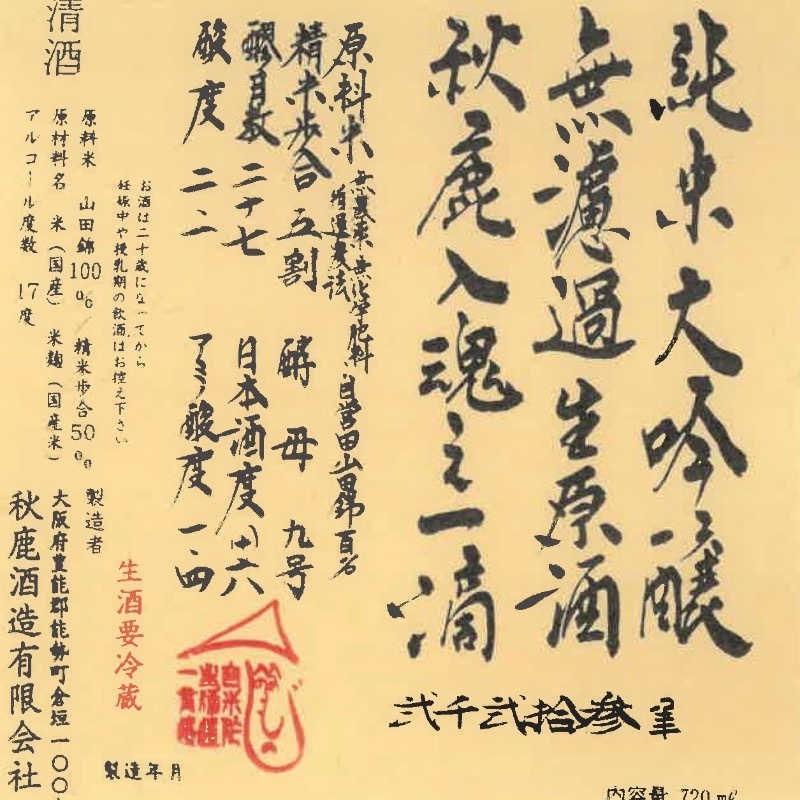 純米大吟醸
無濾過生原酒
秋鹿入魂之一滴
弐千弐拾参年
内容量 720 mℓ
原料米 無農薬無化学肥料 自営田山田錦百%
循環農法
精米歩合 五割 酵母 九号
醪日数 二十七 日本酒度 田六
酸度 二.二 アミノ酸度 一.四
お酒は二十歳になってから
妊娠中や授乳期の飲酒はお控え下さい
生酒要冷蔵
清酒
原料米 山田錦100%/精米歩合50%
原材料名 米(国産) 米麹(国産米)
アルコール度数 17度
製造者
大阪府豊能郡能勢町倉垣一〇〇
秋鹿酒造有限会社
製造年月